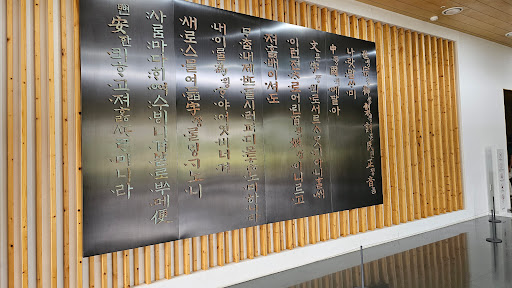 訓훈民민正져ᇰ音음
나랏말ᄊᆞ미
中듀ᇰ國귁에달아
文문字ᄍᆞᆼ와로서르ᄉᆞᄆᆞᆺ디아니ᄒᆞᆯᄊᆡ
이런젼ᄎᆞ로어린百ᄇᆡᆨ姓셔ᇰ이니르고
져호ᇙ배이셔도
ᄆᆞᄎᆞᆷ내제ᄠᅳ들시러펴디몯ᄒᆞᇙ노미하니라
내이ᄅᆞᆯ爲윙ᄒᆞ야어엿비너겨
새로스믈여듧字ᄍᆞᆼᄅᆞᆯᄆᆡᇰᄀᆞ노니
사ᄅᆞᆷ마다ᄒᆡᅇᅧ수ᄫᅵ니겨날로ᄡᅮ메便
뼌安ᅙᅡᆫ킈ᄒᆞ고져ᄒᆞᇙᄯᆞᄅᆞ미니라